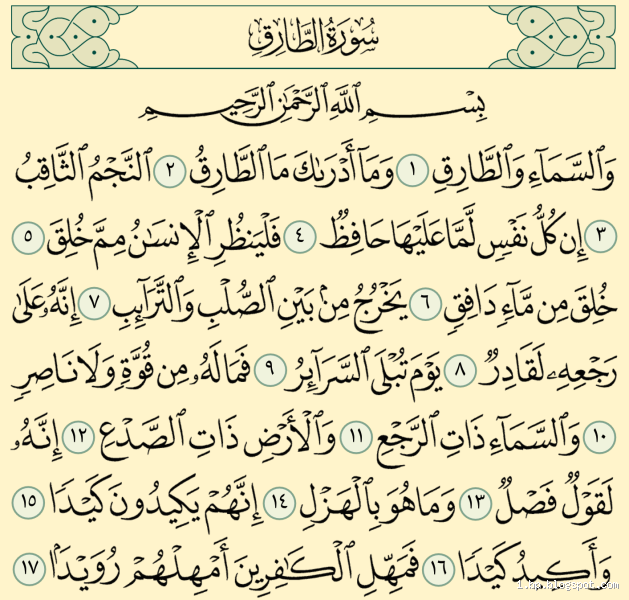 سُورَةُ الطَّارِقِ
بِسْمِ اللَّهِ الرَّحْمَٰنِ الرَّحِيمِ
وَٱلسَّمَآءِ وَٱلطَّارِقِ ١ وَمَآ أَدْرَىٰكَ مَا ٱلطَّارِقُ ٢ ٱلنَّجْمُ ٱلثَّاقِبُ
٣ إِن كُلُّ نَفْسٍ لَّمَّا عَلَيْهَا حَافِظٌ ٤ فَلْيَنظُرِ ٱلْإِنسَٰنُ مِمَّ خُلِقَ ٥
خُلِقَ مِن مَّآءٍ دَافِقٍ ٦ يَخْرُجُ مِنۢ بَيْنِ ٱلصُّلْبِ وَٱلتَّرَآئِبِ ٧ إِنَّهُۥ عَلَىٰ
رَجْعِهِۦ لَقَادِرٌ ٨ يَوْمَ تُبْلَى ٱلسَّرَآئِرُ ٩ فَمَا لَهُۥ مِن قُوَّةٍ وَلَا نَاصِرٍ
١٠ وَٱلسَّمَآءِ ذَاتِ ٱلرَّجْعِ ١١ وَٱلْأَرْضِ ذَاتِ ٱلصَّدْعِ ١٢ إِنَّهُۥ
لَقَوْلٌ فَصْلٌ ١٣ وَمَا هُوَ بِٱلْهَزْلِ ١٤ إِنَّهُمْ يَكِيدُونَ كَيْدًا ١٥
وَأَكِيدُ كَيْدًا ١٦ فَمَهِّلِ ٱلْكَٰفِرِينَ أَمْهِلْهُمْ رُوَيْدًۢا ١٧
1.bp.blogspot.com